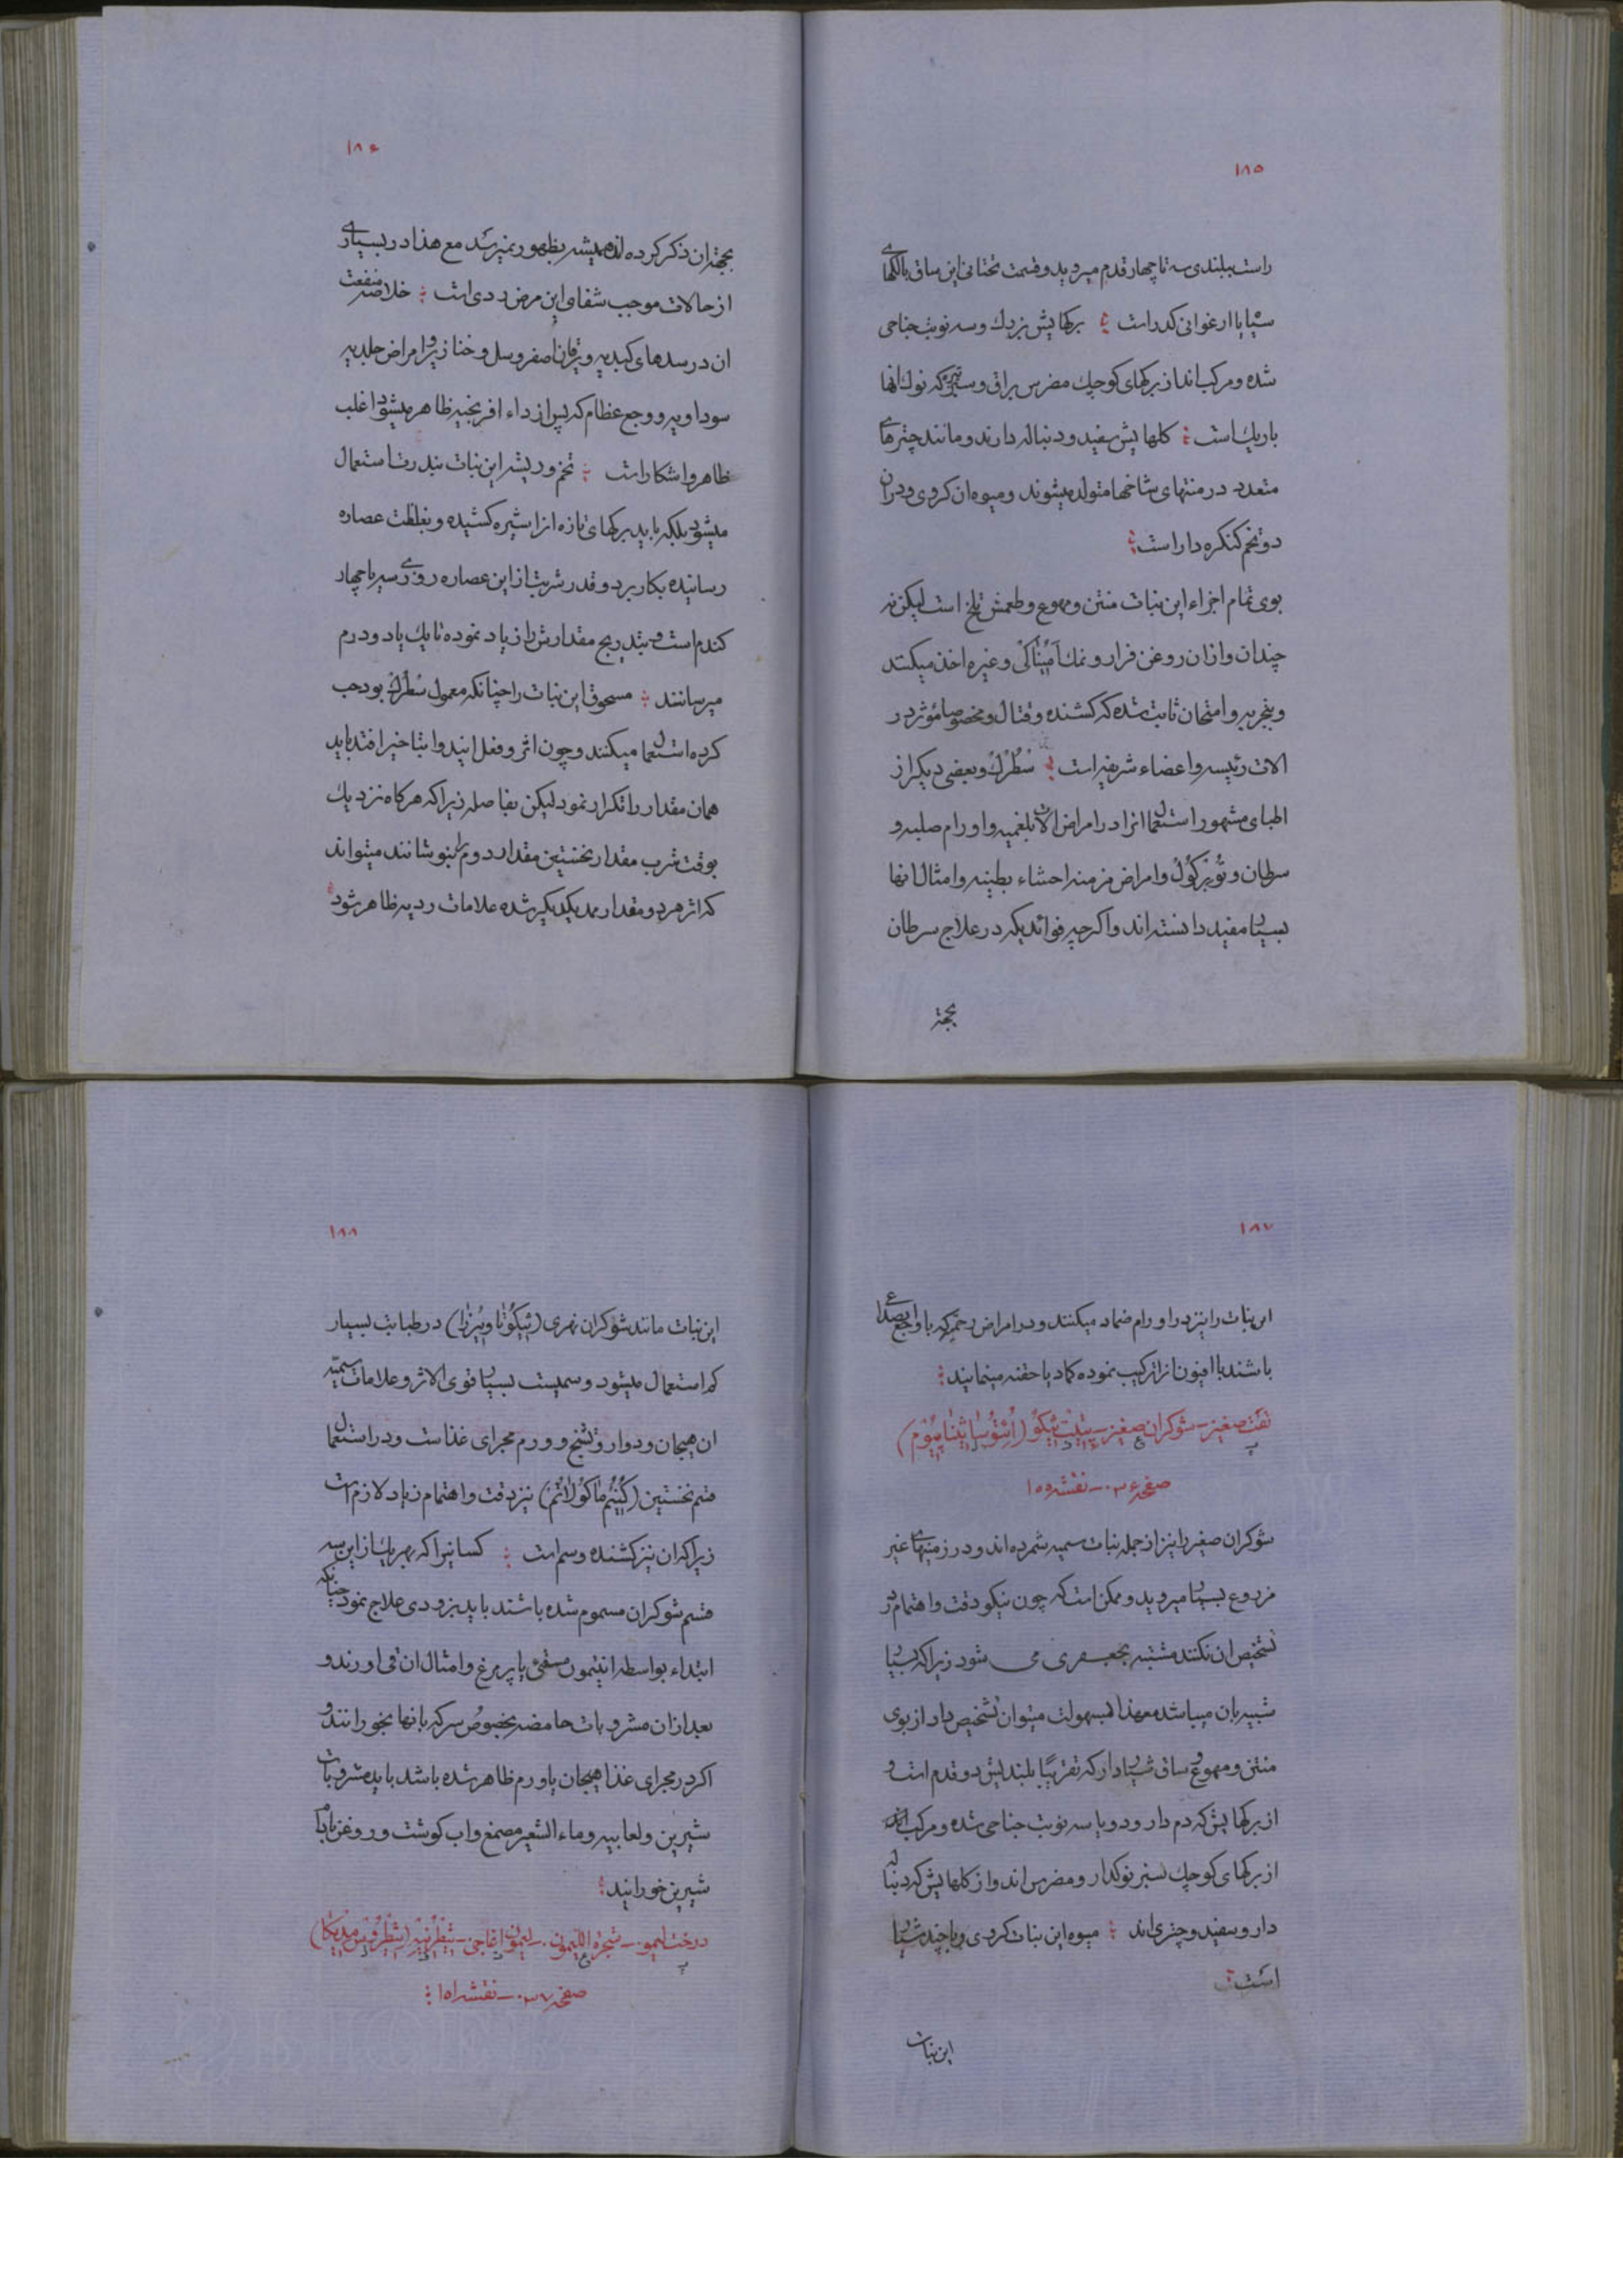 ۱۸۵
راست ببلندی سه تا چهار قدم میروید و قسمت تحتانی این ساق با لکهای
سیاه یا ارغوانی کدر است برکهایش بزرك و سه نوبت جناحی
شده و مرکب اند از برکهای کوچك مضرس براق و سبز تیره که نوك انها
باریك است کلهایش سفید و دنباله دارند و مانند چترهای
متعدد در منتهای شاخها متولد میشوند و میوه ان کروی و دران
دو تخم کنکره دار است
بوی تمام اجزاء این نبات منتن و مهوع و طعمش تلخ است لیکن نه
چندان و ازان روغن فرار و نمك امنیاکی و غیره اخذ میکنند
و بتجربه و امتحان ثابت شده که کشنده و قتال و مخصوصا مؤثر در
الات رئیسه و اعضاء شریفه است سْطُرْك و بعضی دیکر از
اطبای مشهور استعمال انرا در امراض الات بلغمیه و اورام صلبه و
سرطان و توبرکول و امراض مزمنه احشاء بطنیه و امثال انها
بسیار مفید دانسته اند و اکرچه فوائدیکه در علاج سرطان
بجهة
۱۸۶
بجهة ان ذکر کرده اند همیشه بظهور نمیرسد مع هذا در بسیاری
از حالات موجب شفای این مرض ردی است خلاصه منفعت
ان در سدهای کبدیه و یرقان اصفر و سل و خنازیر و امراض جلدیه
سوداویه و وجع عظام که پس از داء افرنجیه ظاهر میشود اغلب
ظاهر و اشکار است تخم و ریشه این نبات بندرت استعمال
میشود بلکه باید برکهای تازه انرا شیره کشیده و بغلظت عصاره
رسانیده بکار برد و قدر شربت از این عصاره روزی سه یا چهار
کندم است و بتدریج مقدارش را زیاد نموده تا یك یا دو درم
میرسانند مسحوق این نبات را چنانکه معمول سْطُرْك بود حب
کرده استعمال میکنند و چون اثر و فعل ایندوا بتاخیر افتد باید
همان مقدار را تکرار نمود لیکن بفاصله زیرا که هرکاه نزدیك
بوقت شرب مقدار نخستین مقدار دوم را بنوشانند میتواند
که اثر هر دو مقدار ممد یکدیکر شده علامات ردیه ظاهر شود
۱۸۷
این نبات را نیز در اورام ضماد میکنند و در امراض رحم که با اوجاع
باشند با افیون انرا ترکیب نموده کماد یا حقنه مینمایند
تفت صغیر – شوکران صغیر – پتیت سیکو (اِتُوسا سْینَاپیُوم)
صفحه ۰۳۶ – نقشه ۱۵۵
شوکران صغیر را نیز از جمله نبات سمیه شمرده اند و در زمینهای غیر
مزروع بسیار میروید و ممکن است که چون نیکو دقت و اهتمام در
تشخیص ان نکنند مشتبه بجعفری می شود زیرا که بسیار
شبیه بان میباشد معهذا بسهولت میتوان تشخیص داد از بوی
منتن و مهوع و ساق شیاردار که تقریبًا بلندیش دو قدم است و
از برکهایش که دم دار و دو یا سه نوبت جناحی شده و مرکب اند
از برکهای کوچك سبز نوکدار و مضرس اند و از کلهایش که دنباله
دار و سفید و چتری اند میوه این نبات کروی و با چند شیار
است
این نبات
۱۸۸
این نبات مانند شوکران نهری (سیکُوتا ویرُزا) در طبابت بسیار
کم استعمال میشود و سمیست بسیار قوی الاثر و علامات سمیّه
ان هیجان و دوار و تشنج و ورم مجرای غذاست و در استعمال
قسم نخستین (کُنیُم ماکُولاتُم) نیز دقت و اهتمام زیاد لازم است
زیرا که ان نیز کشنده و سم است کسانیرا که بهر یك از این سه
قسم شوکران مسموم شده باشند باید بزودی علاج نمود چنانکه
ابتداء بواسطه انتیمون مقیّ یا پر مرغ و امثال ان قی اورند و
بعد ازان مشروبات حامضه بخصوص سرکه بانها بخورانند و
اکر در مجرای غذا هیجان یا ورم ظاهر شده باشد باید مشروبات
شیرین و لعابیه و ماء الشعیر مصمغ و اب کوشت و روغن بادام
شیرین خورانید
درخت لیمو – شجرة اللیمون – لیمون اغاجی – سیطرنیه (سیطروس مدیکا)
صفحه ۰۳۷ – نقشه ۱۵۱